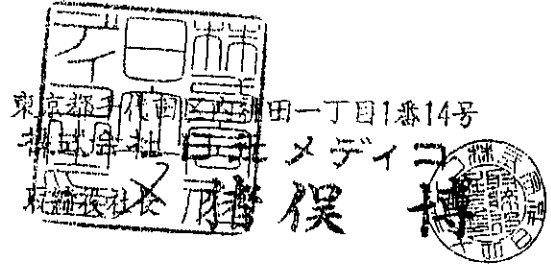 東京都千代田区内神田一丁目1番14号
株式会社日立メディコ
取締役社長 猪俣 博